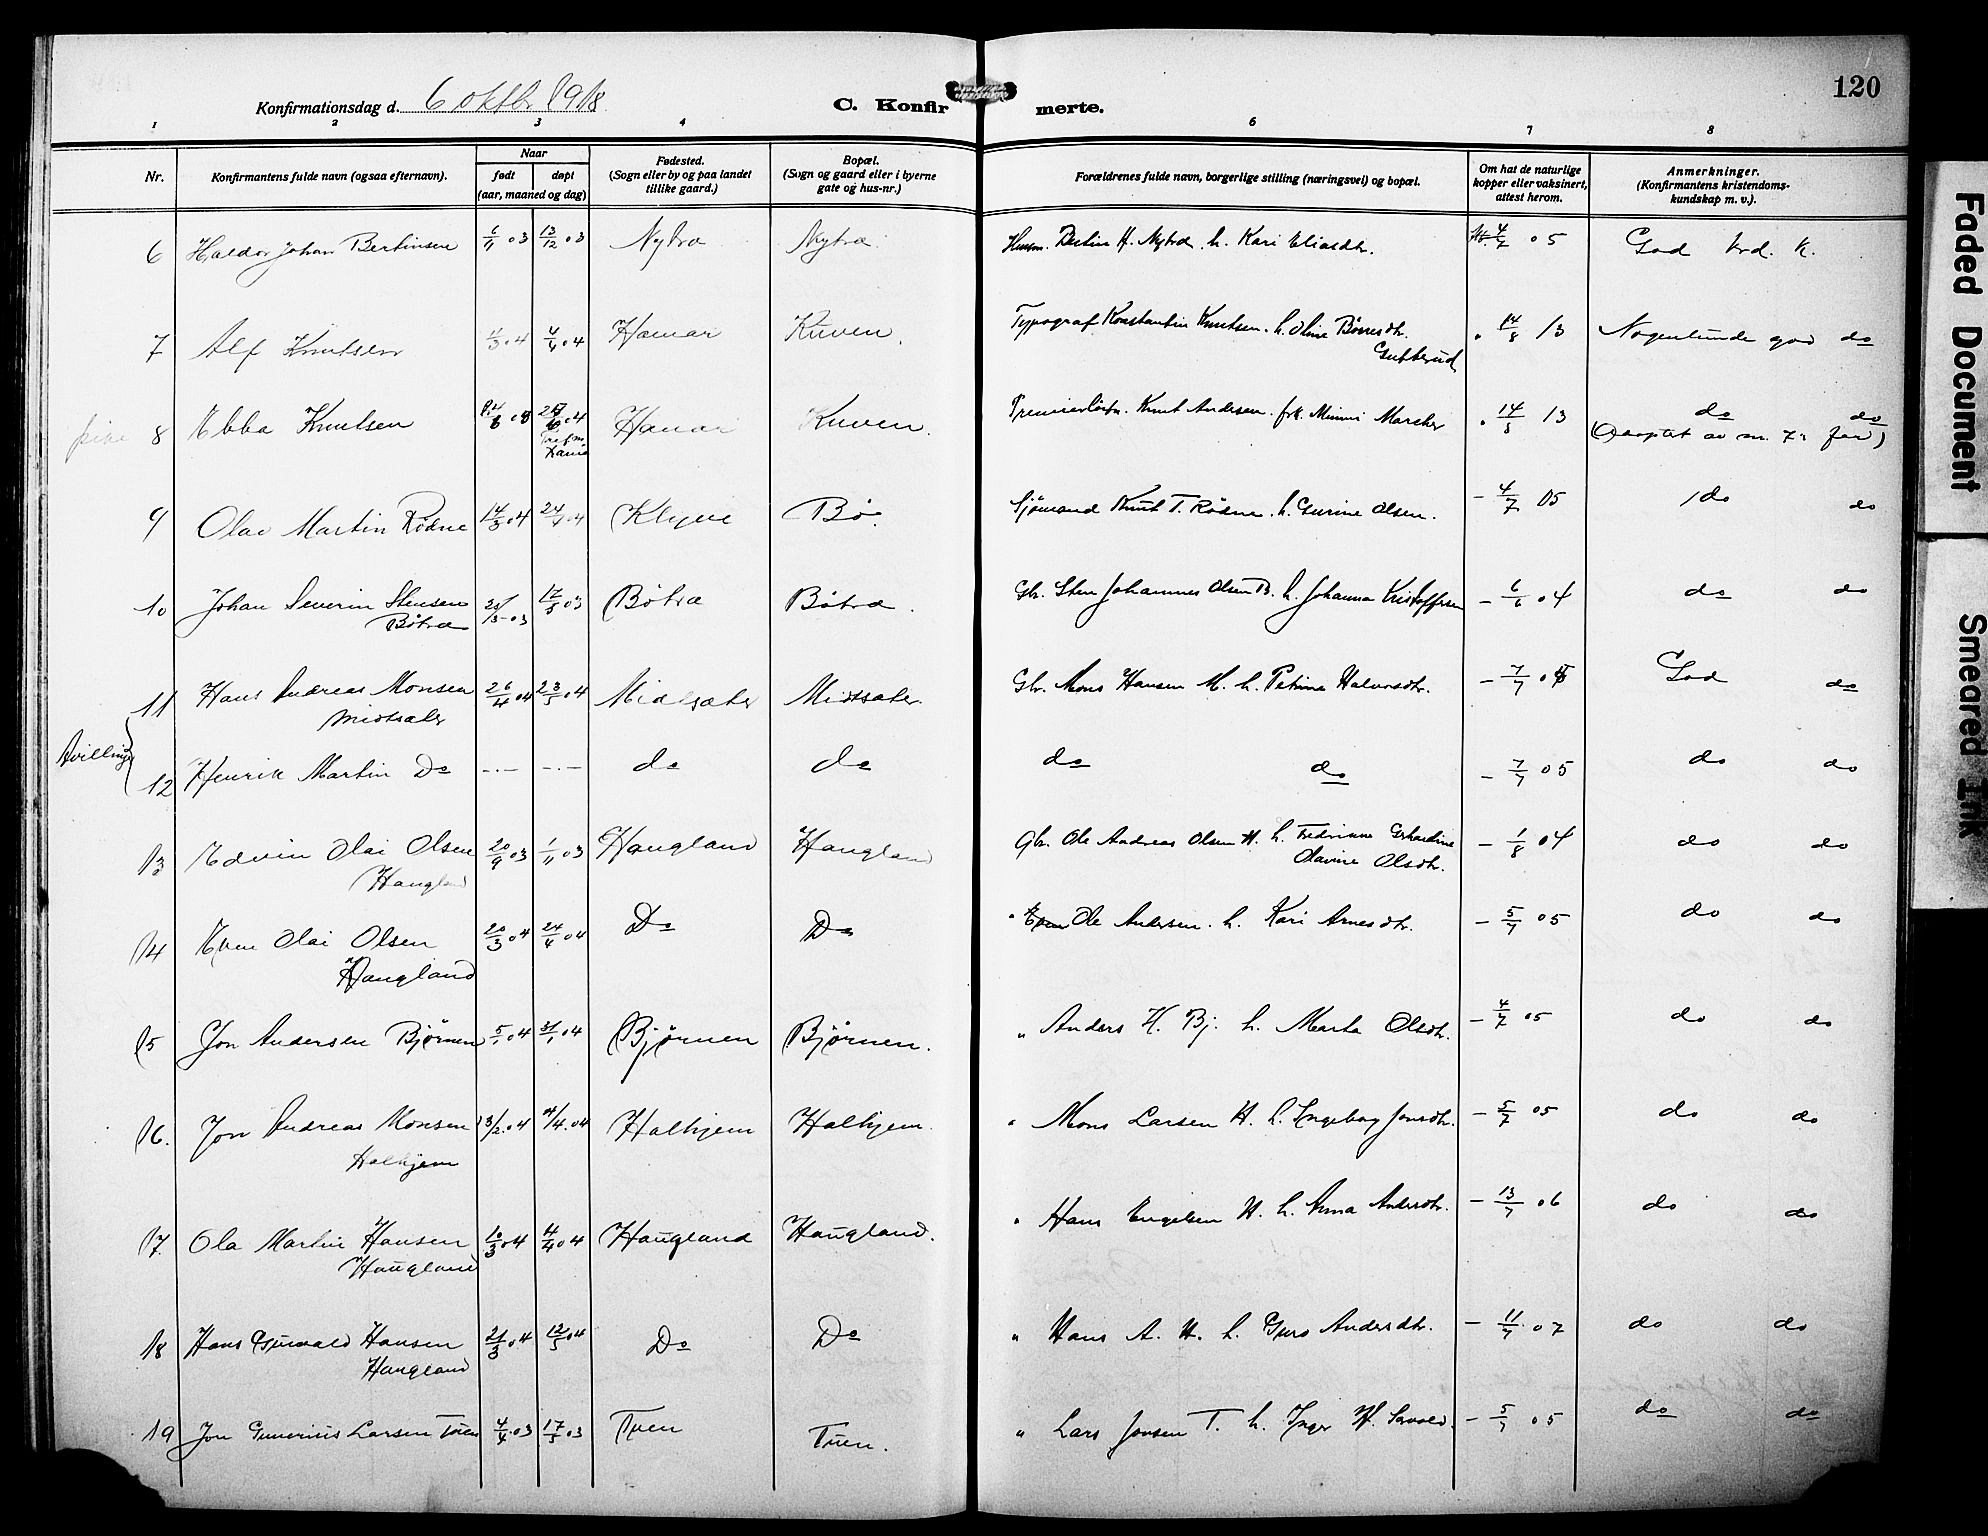 120
Konfirmationsdag d. 6 oktbr 1918
C. Konfirmerte.
1 2 3 4 6 7 8
Nr.
Konfirmantens fulde navn (ogsaa efternavn).
Naar
født
døpt
(aar, maaned og dag)
Fødested.
(Sogn eller by og paa landet
tillike gaard.)
Bopæl.
(Sogn og gaard eller i byerne
gate og hus-nr.)
Forældrenes fulde navn, borgerlige stilling (næringsvei) og bopæl.
Om hat de naturlige
kopper eller vaksinert,
attest herom.
Anmerkninger.
(Konfirmantens kristendoms-
kundskap m. v.).
6 Haldor Johan Bertinsen 6/11 03 13/12 03 Nytræ Nytræ Husm. Bertin H. Nytræ h. Kari Eliasdtr. 4/7 05 God krd. k.
7 Alf Knutsen 1/3 04 4/4 04 Hamar Kuven. Typograf Konstantin Knutsen. h. Oline Børresdtr.
Gubberud " 14/8 13 Nogenlunde god do
pike 8 Ebba Knutsen Hamar Kuven. Premierløitn. Knut Andersen. frk. Mimmi " 14/8 13 do do
(Adoptet av nr. 7s far)
9 Olav Martin Rødne 14/3 04 04 Bø. Sjømand Knut T. Rødne. h. Gurine Olsen. - 4/7 05 do do
10 Johan Severin Stensen
Bøtræ 17/5 03 Bøtræ Bøtræ. Gbr. Sten Johannes Olsen B. h. Johanna Kristoffersen - 6/6 04 do do
11 Hans Andreas Monsen
Midtsæter 26/4 04 23/5 04 Midtsæter Midtsæter. Gbr. Mons Hansen M. h. Petrine Halvorsdtr. - 7/7 05 God do
Tvillinger
12 Henrik Martin Do -"- -"- do do do do - 7/7 05 do do
13 Edvin Olai Olsen
Haugland 20/9 03 1/11 03 Haugland Haugland Gbr. Ole Andreas Olsen H. h. Fredrikke Gerhardine
Olavine Olsdtr. - 1/8 04 do do
14 Even Olai Olsen
Haugland 20/3 04 24/4 04 Do Do " Ole Andersen. h. Kari Arnesdtr. - 5/7 05 do do
15 Jon Andersen Bjørnen 5/1 04 31/1 04 Bjørnen Bjørnen. " Anders H. Bj. h. Marta Olsdtr. - 4/7 05 do do
16. Jon Andreas Monsen
Halhjem 13/2. 04 4/4. 04 Halhjem Halhjem. " Mons Larsen H. h. Ingeborg Jonsdtr. - 5/7 05 do do
17 Ola Martin Hansen
Haugland 10/3 04 4/4 04 Haugland Haugland. " Hans Engelsen H. h. Anna Andersdtr. - 13/7 06 do do
18 Hans Gunvald Hansen
Haugland 21/3 04 12/5 04 Do Do " Hans A. H. h. Guro Andersdtr. - 11/7 07 do do
19 Jon Gunerius Larsen Tuen 4/4 03 17/5 03 Tuen Tuen. " Lars Jonsen T. h. Inger H. - 5/7 05 do do
Faded Document
Smeared Ink